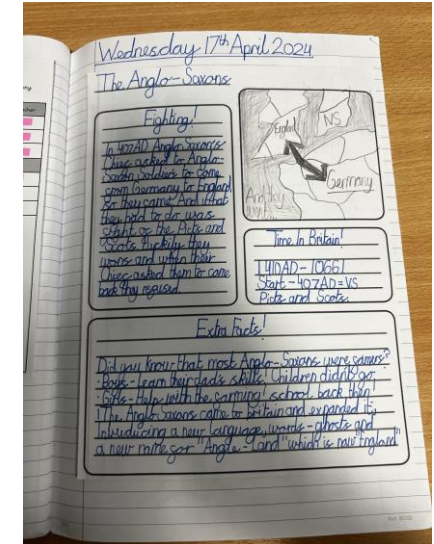 Wednesday 17th April 2024
The Anglo-Saxons
Fighting!
In 407AD Anglo Saxon's
Chiec asked for Anglo-
Saxon Soldiers to come
from Germany to England
So they came And what
they had to do was
fight of the Picts and
Scots. luckily they
wons and when their
Chiec asked them to come
back they refused
England
NS
Germany
Time In Britain!
410AD - 1066
Start - 407AD = VS
Picts and Scots
Extra Facts!
Did you know that most Anglo-Saxons were farmers?
·Boys - learn their dad's skills! Children didn't go
·Girls - Help with the farming! school back then!
The Anglo Saxons came to britain and expanded it,
Introducing a new language, words - ghosts and
a new name for "Angle-Land" which is now "England"